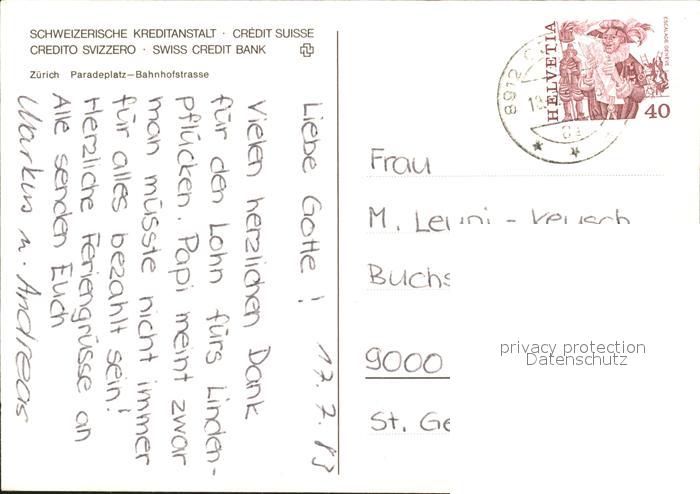 SCHWEIZERISCHE KREDITANSTALT · CRÉDIT SUISSE
CREDITO SVIZZERO · SWISS CREDIT BANK
Zürich Paradeplatz–Bahnhofstrasse
17.7.83
Liebe Gotte!
Vielen herzlichen Dank
für den Lohn fürs Linden-
pflücken. Papi meint zwar
man müsste nicht immer
für alles bezahlt sein!
Herzliche Feriengrüsse an
Alle senden Euch
Markus u. Andreas
8912
HELVETIA
ESCALADE GENÈVE
40
Frau
M.
Buchs
9000
St. Ge
privacy protection
Datenschutz